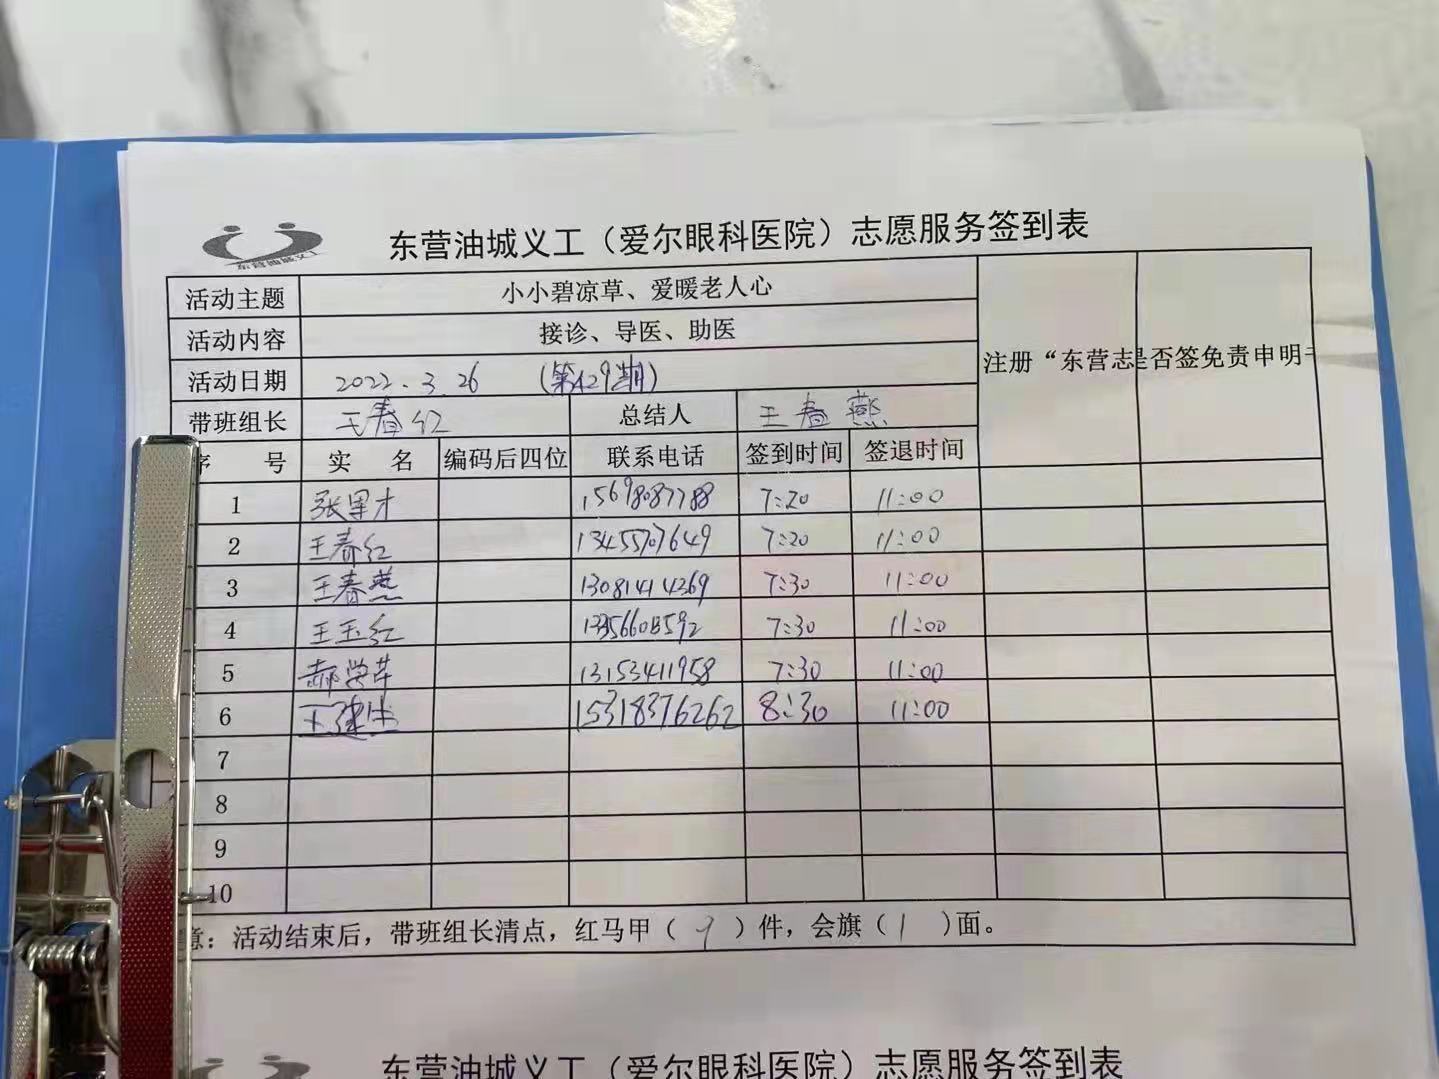 东营油城义工
东营油城义工（爱尔眼科医院）志愿服务签到表
活动主题 小小碧凉草、爱暖老人心
活动内容 接诊、导医、助医
活动日期 2022.3.26 （第429期）
注册“东营志 是否签免责申明书
带班组长 王春红 总结人 王春燕
序 号 实 名 编码后四位 联系电话 签到时间 签退时间
1 张军才 15698087788 7:20 11:00
2 王春红 13455707649 7:20 11:00
3 王春燕 13081414269 7:30 11:00
4 王玉红 7:30 11:00
5 郝学芹 13153411958 7:30 11:00
6 王建生 15318376262 8:30 11:00
7
8
9
10
意：活动结束后，带班组长清点，红马甲（ 9 ）件，会旗（ 1 ）面。
东营油城义工（爱尔眼科医院）志愿服务签到表